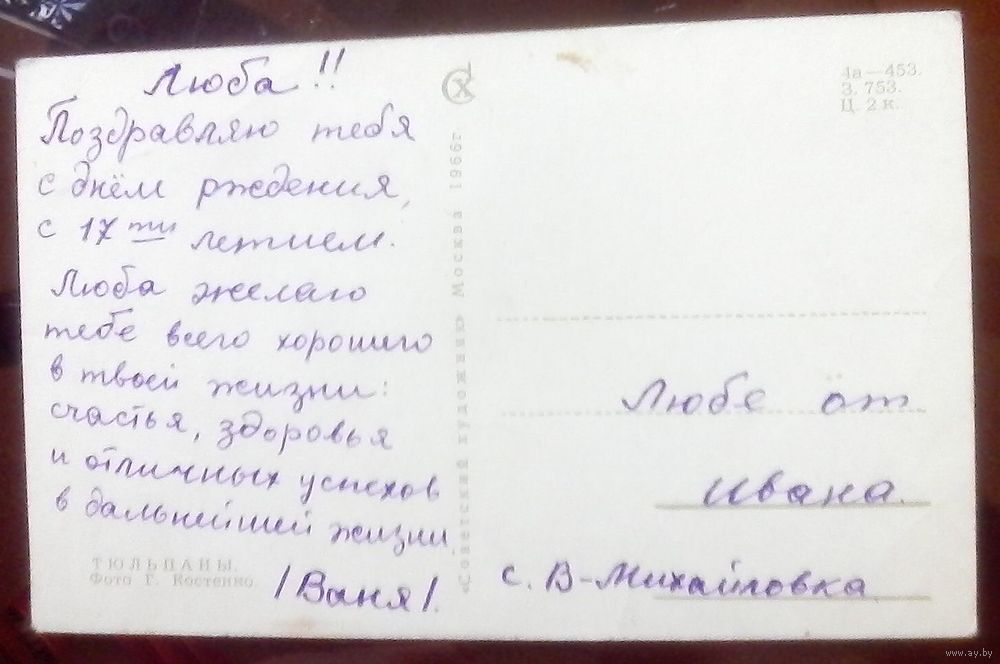 Люба!!
Поздравляю тебя
с днём рждения,
с 17ти летием.
Люба желаю
тебе всего хорошиго
в твоей жизни:
счастья, здоровья
и отличных успехов
в дальнейшей жизни
/Ваня/.
ТЮЛЬПАНЫ.
Фото Г. Костенко
«Советский художник» Москва 1966г
СХ
4а—453.
З. 753.
Ц. 2 к.
Любе от
Ивана.
с. В-Михайловка
www.ay.by